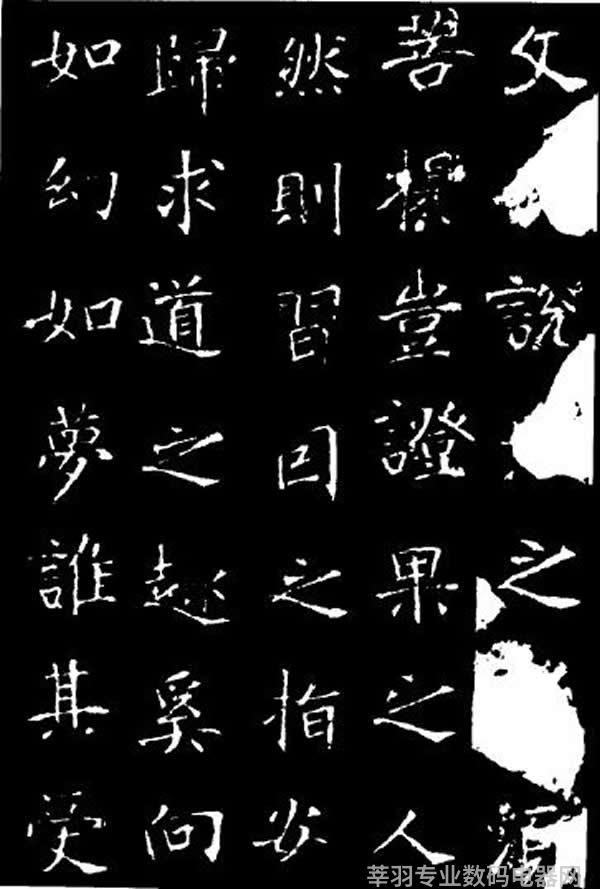 文說之
菩提豈證果之人
然則習因之指安
歸求道之趣奚向
如幻如夢誰其受
莘羽专业数码电器网